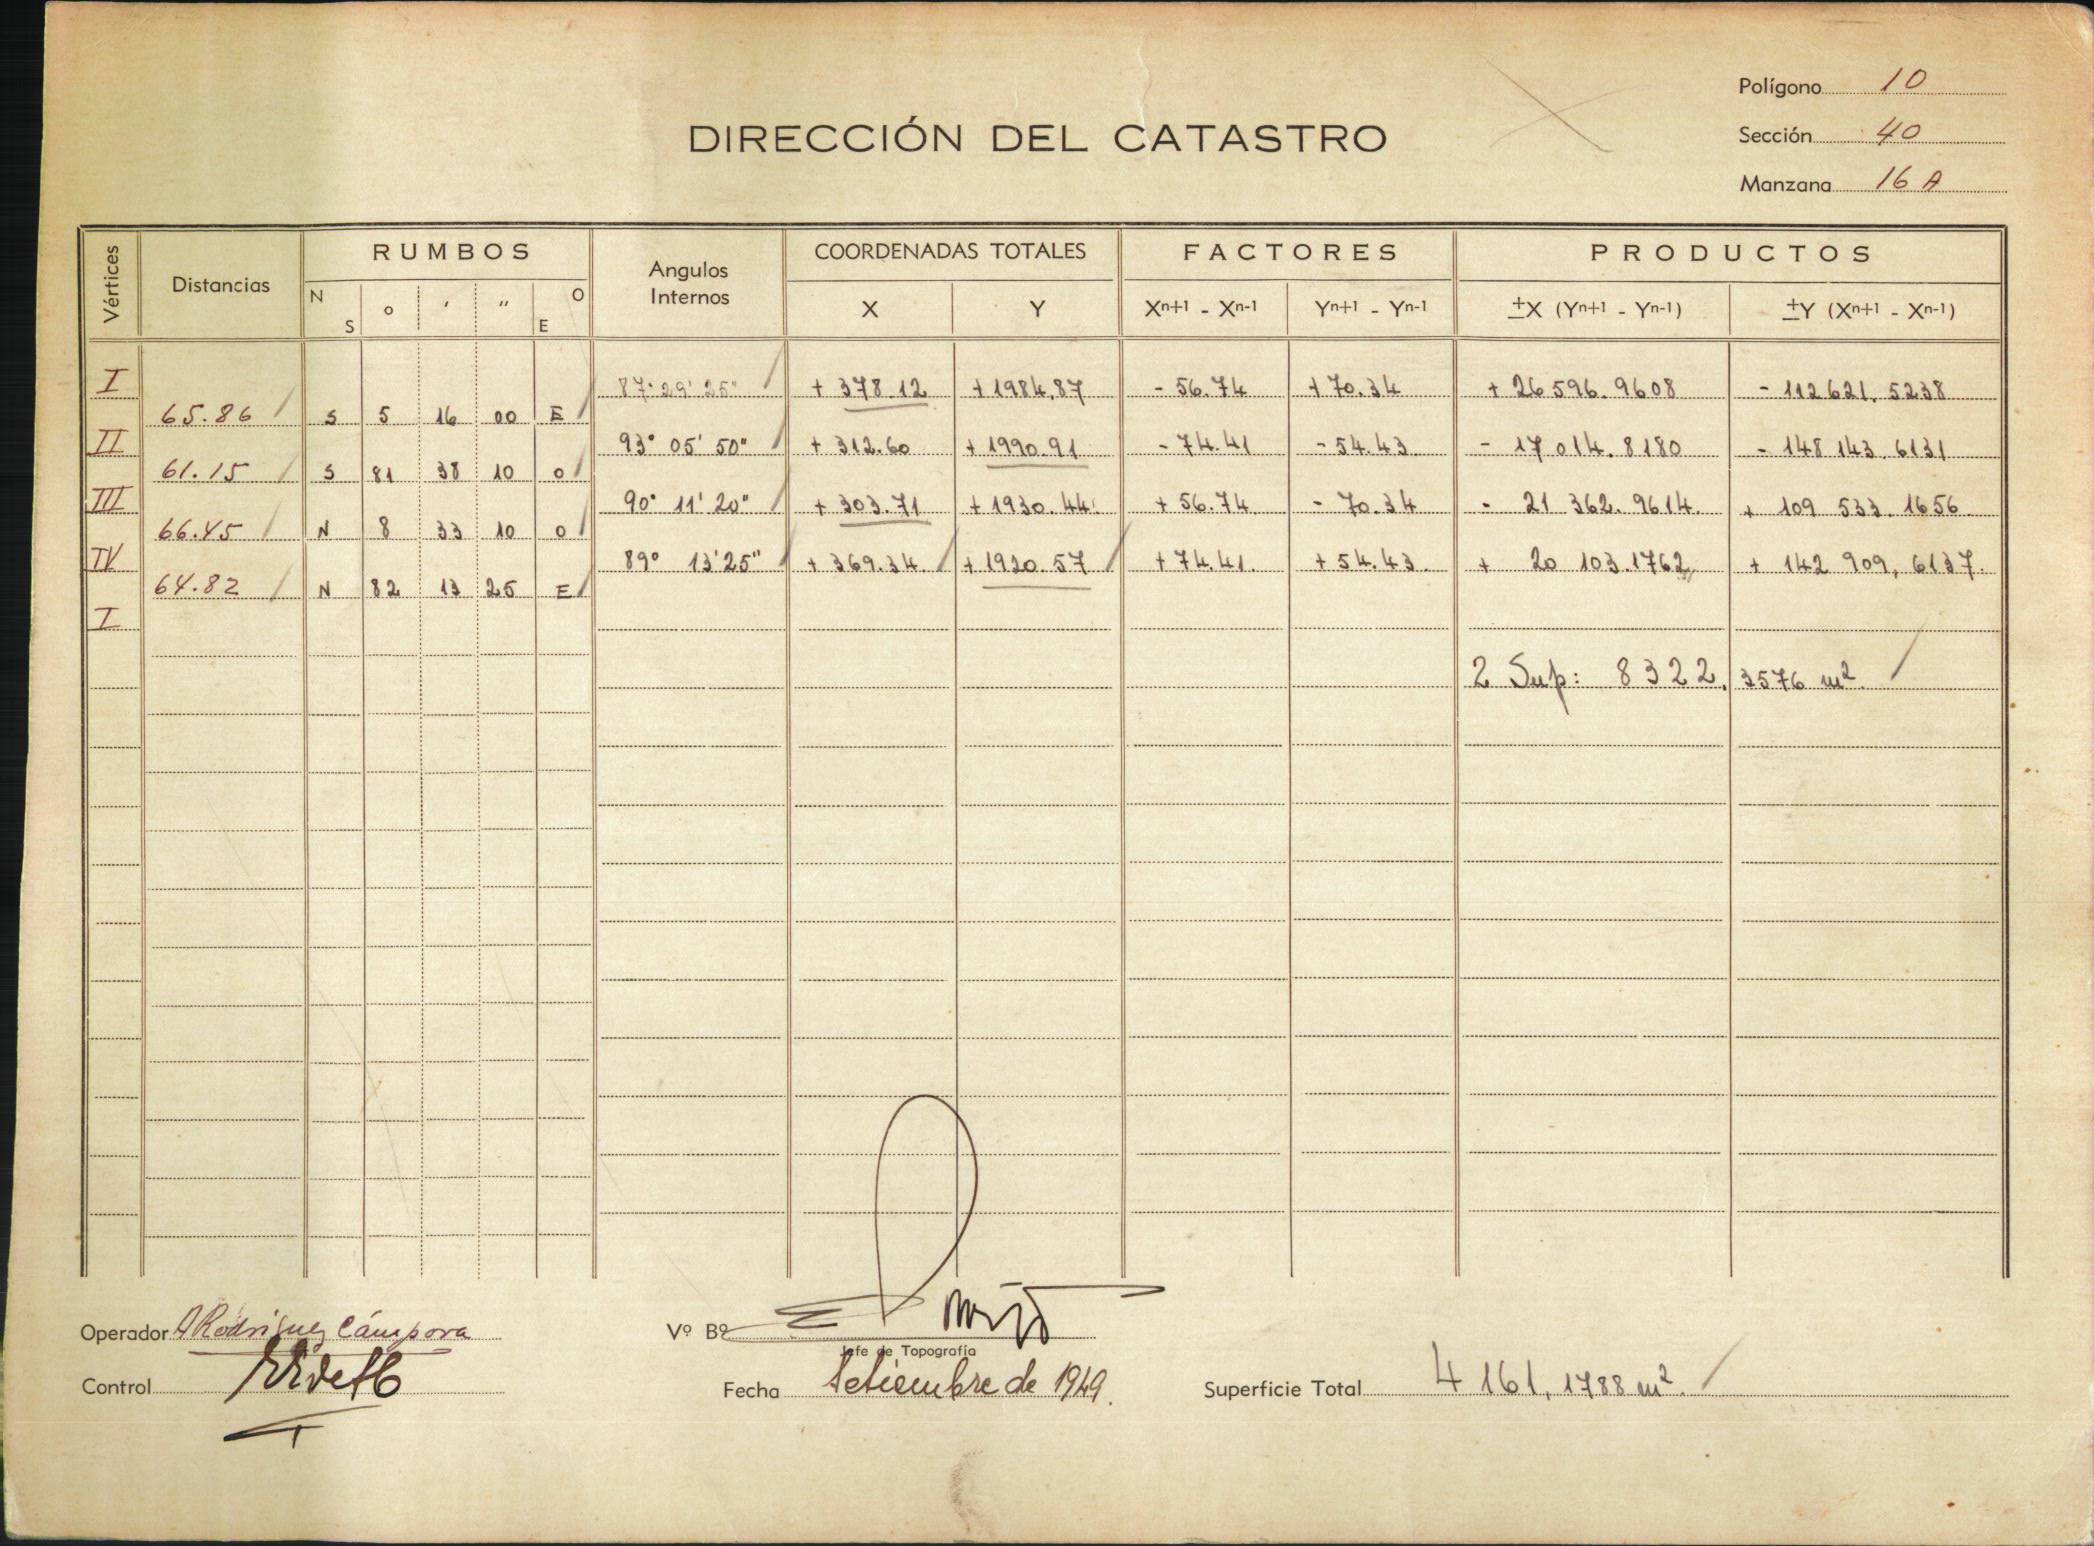 Polígono 10
DIRECCIÓN DEL CATASTRO
Sección 40
Manzana 16 A
Vértices Distancias RUMBOS Angulos Internos COORDENADAS TOTALES FACTORES PRODUCTOS
N S ° ' " O E X Y Xn+1 - Xn-1 Yn+1 - Yn-1 ±X (Yn+1 - Yn-1) ±Y (Xn+1 - Xn-1)
I 87° 29' 25" + 378.12 + 1984.87 - 56.74 + 70.34 + 26 596.9608 - 112 621.5238
65.86 S 5 16 00 E
II 93° 05' 50" + 312.60 + 1990.91 - 74.41 - 54.43 - 17 014.8180 - 148 143.6131
61.15 S 81 38 10 O
III 90° 11' 20" + 303.71 + 1930.44 + 56.74 - 70.34 - 21 362.9614 + 109 533.1656
66.45 N 8 33 10 O
IV 89° 13' 25" + 369.34 + 1920.57 + 74.41 + 54.43 + 20 103.1762 + 142 909,6137
64.82 N 82 13 25 E
I
2 Sup: 8322,3576 m²
Operador A Rodriguez Cámpora
Vº Bº
Jefe de Topografía
Control
Fecha Setiembre de 1949.
Superficie Total 4 161,1788 m².